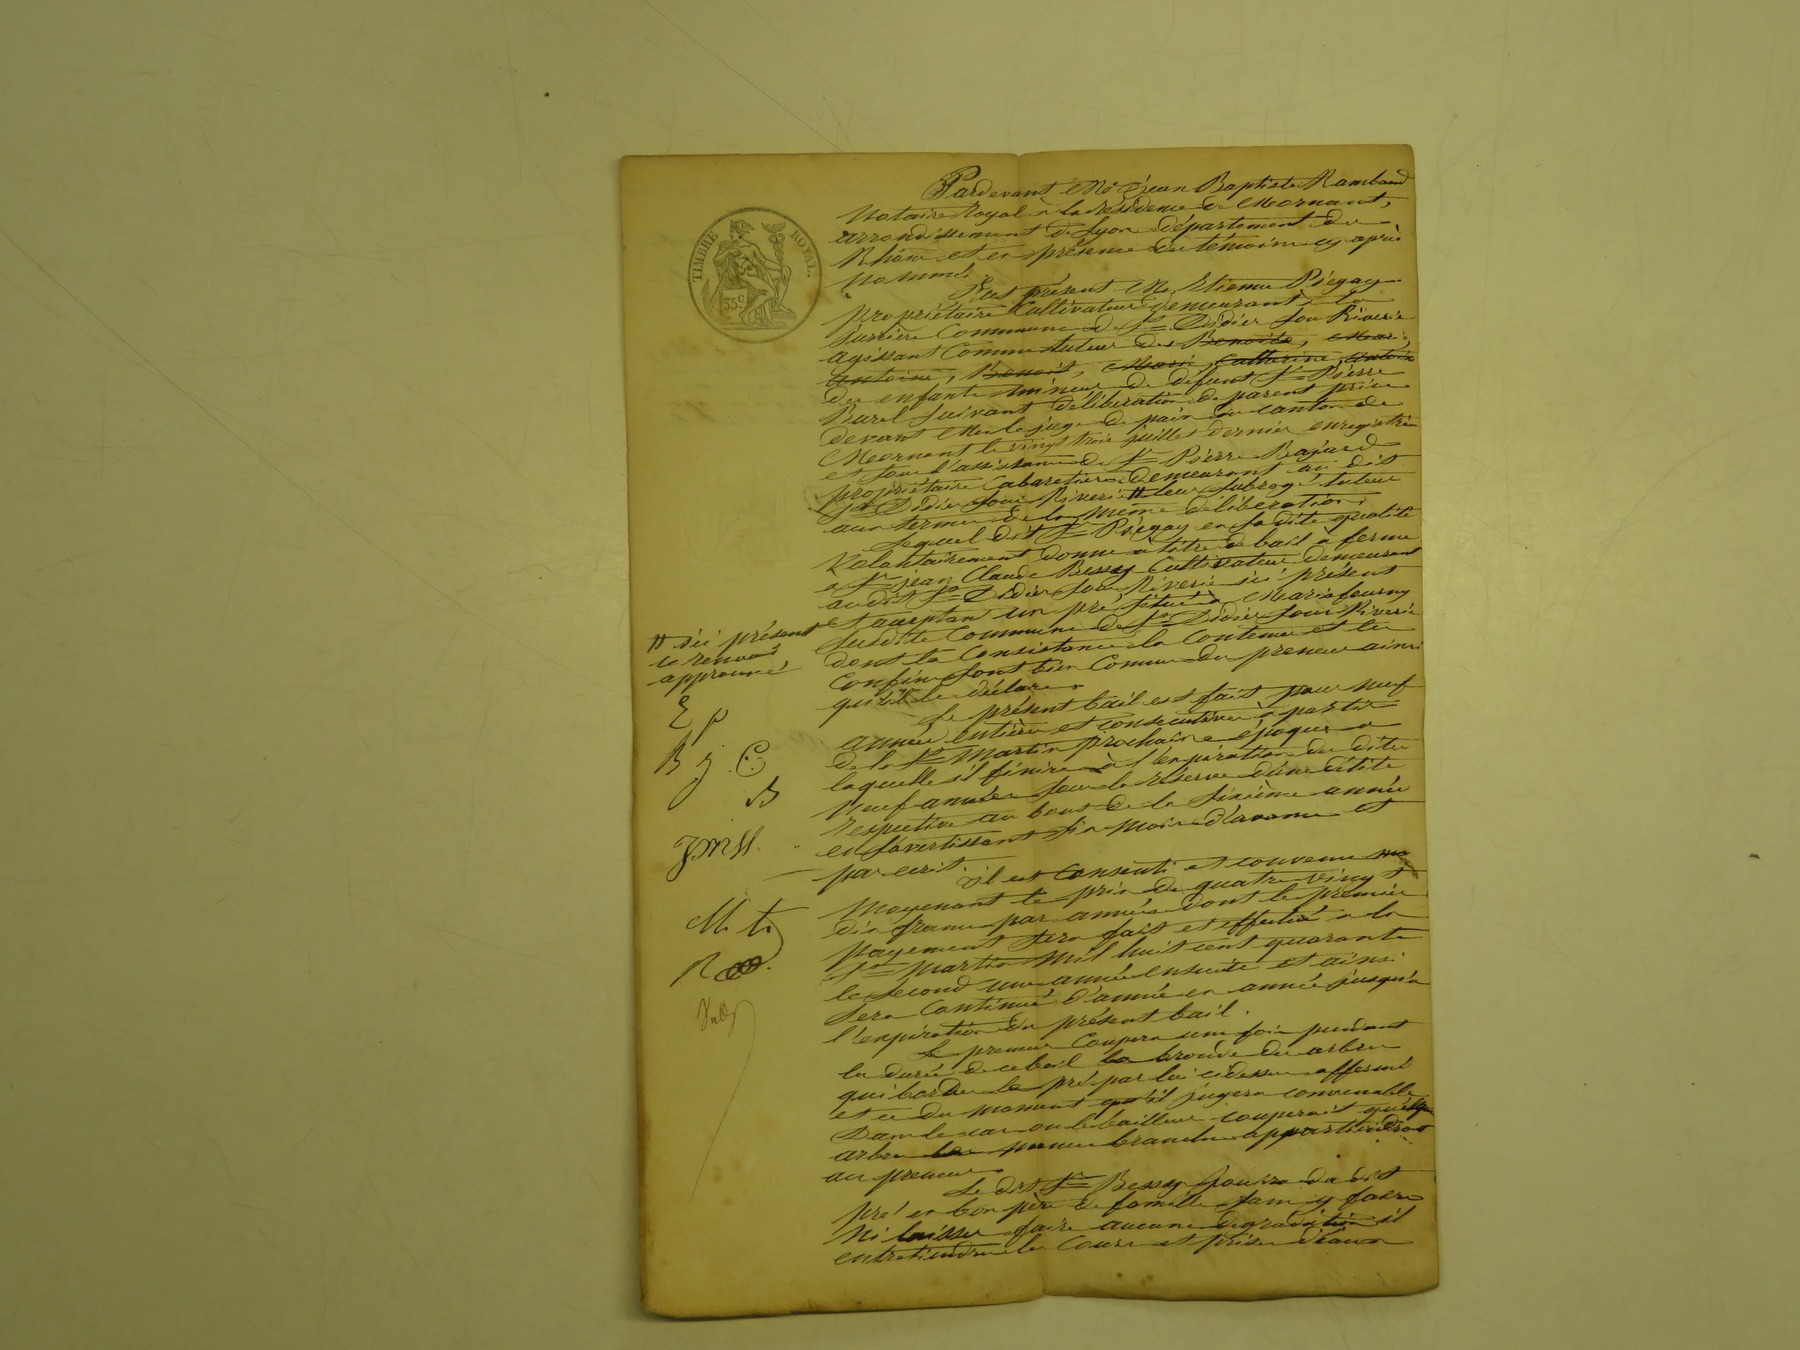 TIMBRE ROYAL.
35 c
Pardevant Me Jean Baptiste Rambaud
Notaire Royal à la résidence de Mornant,
arrondissement de Lyon département du
Rhône et en présence des témoins cy après
nommés
Est présent Mr Etienne Piégay
propriétaire Cultivateur demeurant à la
Commune de St Didier sou Riverie
agissant Comme tuteur des Benoite, Marie,
Antoine, Benoit, Marie, Catherine, Antoine
des enfants mineur de défunt Sr Pierre
Burel suivant délibération de parent prise
devant Mr le juge de paix du canton de
Mornant le vingt trois juillet dernier enregistrée
et sou l'assistance de Sr Pierre Bajard
propriétaire Cabaretier demeurant au dit
St Didier sous Riverie # leur subrogé tuteur
aux termes de la même délibération;
Lequel dit Sr Piégay en sa dite qualité
Volontairement donne à titre de bail à ferme
a Sr jean Claude Bessy Cultivateur demeurant
au dit St Didier sou Riverie ici présent
et acceptan un pré situé à
susdite Commune de St Didier sous Riverie
dont la Consistance la Contenue et les
Confins sont bien Connus du preneur ainsi
qu'il le déclare.
Le présent bail est fait pour neuf
année entière et consécutive à partir
de la St Martin prochaine époque a
laquelle il finira à l'expiration des dites
neuf années sou la réserve d'une dédite
respective au bout de la sixième année
en s'avertissant six mois d'avance et
par écrit.
il est Consenti et convenu
moyenant le prix de quatre vingt
dix francs par année dont le premier
payement sera fait et effectué à la
St Martin mil huit cent quarante
le second une année ensuite et ainsi
sera Continué d'année en année jusqu'a
l'expiration du présent bail.
Le preneur Coupera une fois pendant
la durée de ce bail la broude des arbres
qui borde le pré par lui cidessus affermé
et ce du moment qu'il jugera convenable
Dans le cas ou le bailleur couperait quelque
arbre les menues branches appartiendront
au preneur.
Le dit Sr Bessy jouira du dit
pré en bon père de famille sans y faire
Ni laisser faire aucune dégradation il
entretiendra les Cours et prises d'eaux
# ici présent
ce renvoi
approuvé
E p
B j. C.
B
M. t.
R